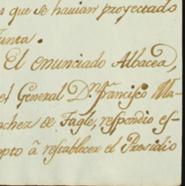 s que se havian proyectado
Junta.
El enunciado Albacea,
el General Dn. Francisco Ma
nchez de Tagle, respondio es-
pto â restablecer el Presidio